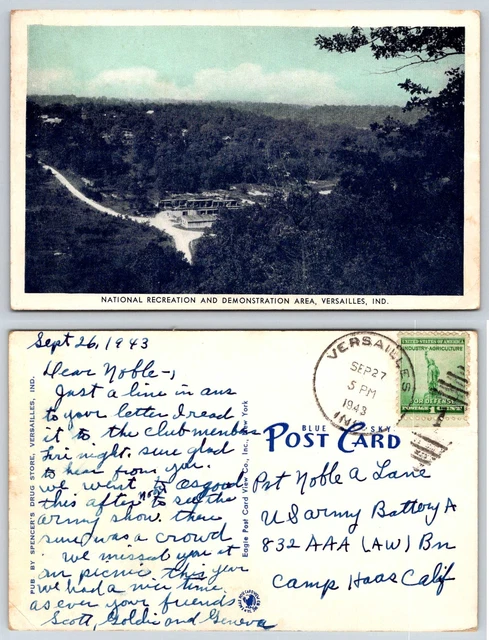 NATIONAL RECREATION AND DEMONSTRATION AREA, VERSAILLES, IND.
Sept 26, 1943
Dear Noble-,
Just a line in ans
to your letter I read
it to the club members
Fri night. sure glad
to hear from you.
we went to Osgood
this afternoon to see the
army show. there
sure was a crowd
we missed you at
our picnic this year
we had a nice time.
as ever your friends
Scott, Goldie and Geneva
PUB BY SPENCER'S DRUG STORE, VERSAILLES, IND.
Eagle Post Card View Co., Inc., New York
BLUE SKY
POST CARD
VERSAILLES
SEP 27
5 PM
1943
IND
UNITED STATES OF AMERICA
INDUSTRY-AGRICULTURE
FOR DEFENSE
POSTAGE 1 CENT
Pvt Noble A Lane
US army Battery A
832 AAA (AW) Bn
Camp Haas Calif